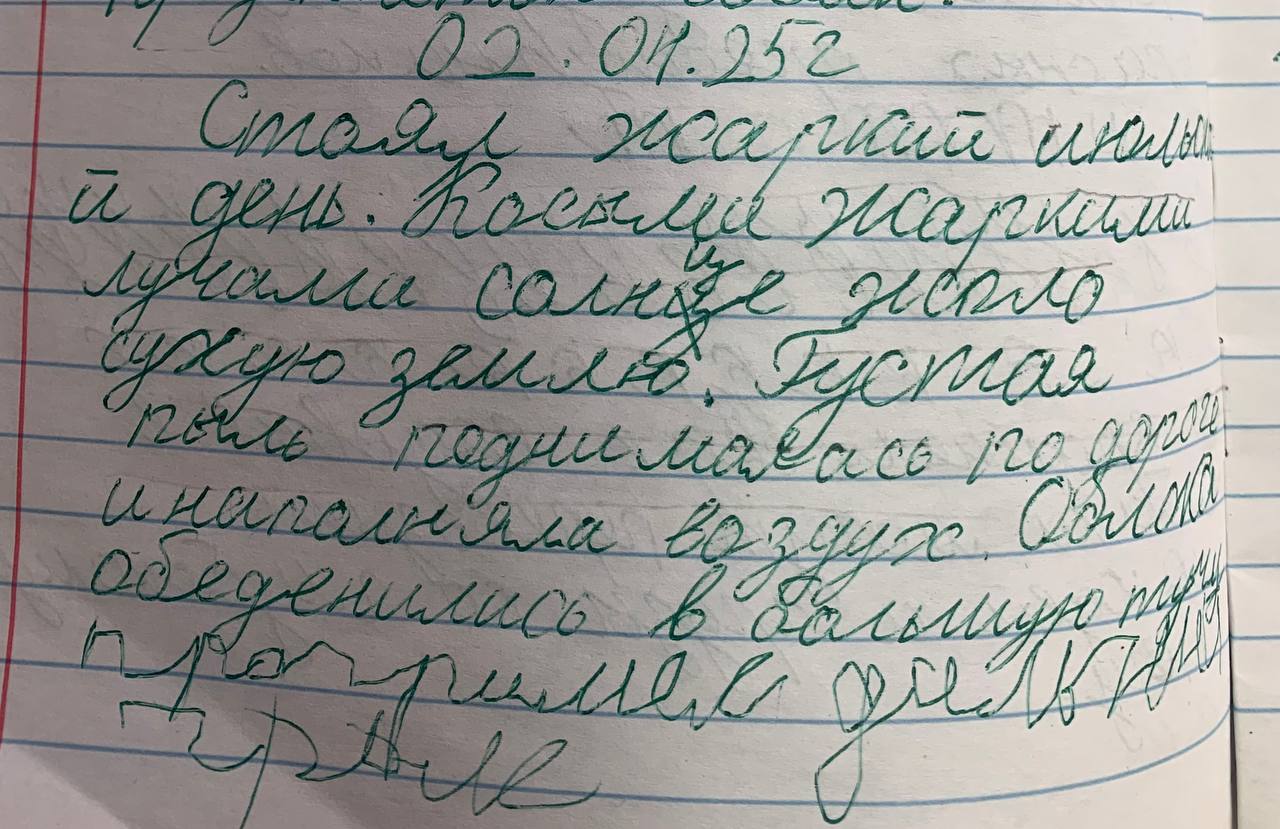 02.04.25г
Стоял жаркий июльски
й день. Косыми жаркими
лучами солнце жгло
сухую землю. Густая
пыль поднималась по дороге
и наполняла воздух. Облока
обеденились в большую тучу